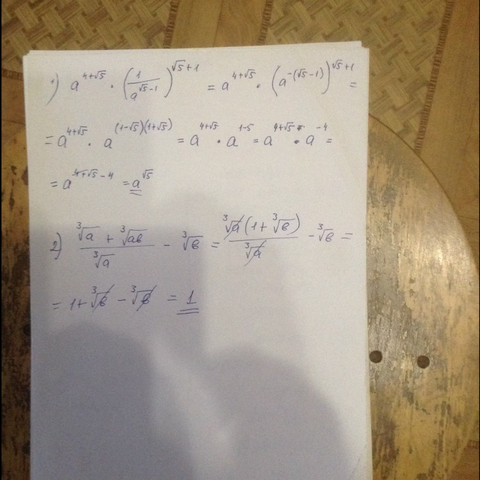 1) a^{4+√5} · (1/a^{√5-1})^{√5+1} = a^{4+√5} · (a^{-(√5-1)})^{√5+1} =
= a^{4+√5} · a^{(1-√5)(1+√5)} = a^{4+√5} · a^{1-5} = a^{4+√5} · a^{-4} =
= a^{4+√5-4} = a^{√5}
2) (∛a + ∛ab)/∛a - ∛b = ∛a(1+∛b)/∛a - ∛b =
= 1+∛b - ∛b = 1